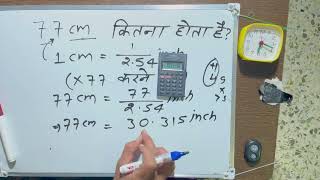 77 cm कितना होता है?
1 cm = 1/2.54 inch
(×77 करने
77 cm = 77/2.54 inch
⇒77 cm = 30.315 inch